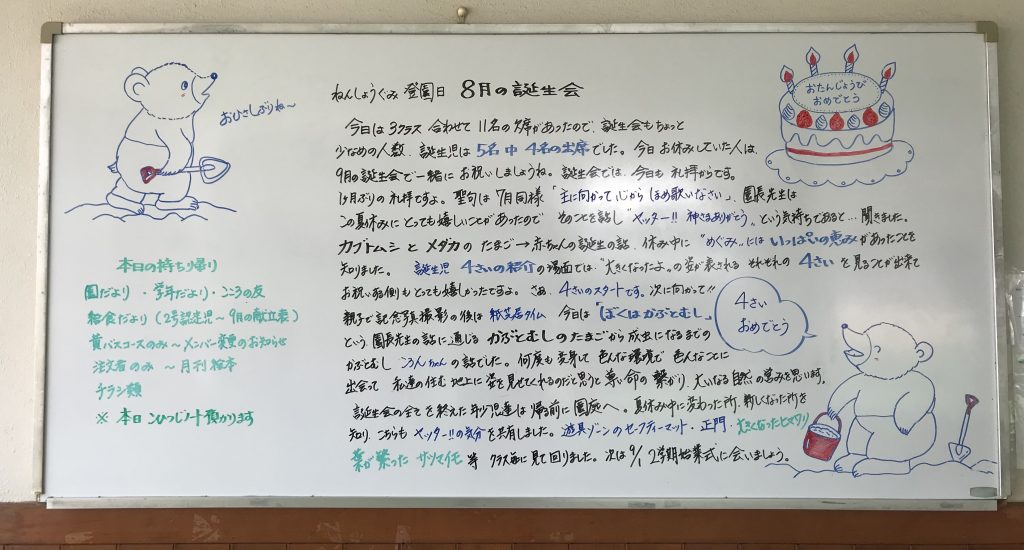 おひさしぶりね〜
ねんしょうぐみ 登園日 8月の誕生会
おたんじょうび
おめでとう
今日は3クラス合わせて11名の欠席があったので、誕生会もちょっと
少なめの人数、誕生児は5名中4名の出席でした。今日お休みしていた人は、
9月の誕生会で一緒にお祝いしましょうね。誕生会では、今日も礼拝からです。
1ヶ月ぶりの礼拝ですよ。聖句は7月同様「主に向かって心からほめ歌いなさい」、園長先生は
この夏休みにとっても嬉しいことがあったので そのことを話し"ヤッター!! 神さまありがとう"、という気持ちであると…聞きました。
カブトムシとメダカのたまご→赤ちゃんの誕生の話、休み中に"めぐみ"にはいっぱいの恵みがあったことを
知りました。 誕生児 4さいの紹介の場面では"大きくなったよ"の姿が表される それぞれの4さいを見ることが出来て
お祝いする側もとっても嬉しかったですよ。さあ、4さいのスタートです。次に向かって!!
親子で記念写真撮影の後は 紙芝居タイム 今日は「ぼくはかぶとむし」
という園長先生の話に通じる かぶとむしのたまごから成虫になるまでの
かぶとむし ころんちゃんの話でした。何度も変身して 色んな環境で 色んなことに
出会って 私達の住む地上に姿を見せてくれるのだと思うと 尊い命の繋がり、大いなる自然の営みを思います。
誕生会の全てを終えた年少児達は 帰る前に園庭へ。夏休み中に変わった所、新しくなった所を
知り、こちらも ヤッター!!の気分を共有しました。遊具ゾーンのセーフティーマット・正門・大きくなったヒマワリ
葉が繁った サツマイモ 等 クラス毎に見て回りました。次は9/1 2学期始業式に会いましょう。
4さい
おめでとう
本日の持ち帰り
園だより・学年だより・こころの友
給食だより(2号認定児〜9月の献立表)
黄バスコースのみ〜メンバー変更のお知らせ
注文者のみ 〜月刊絵本
チラシ類
※ 本日 ひつじノート預かります